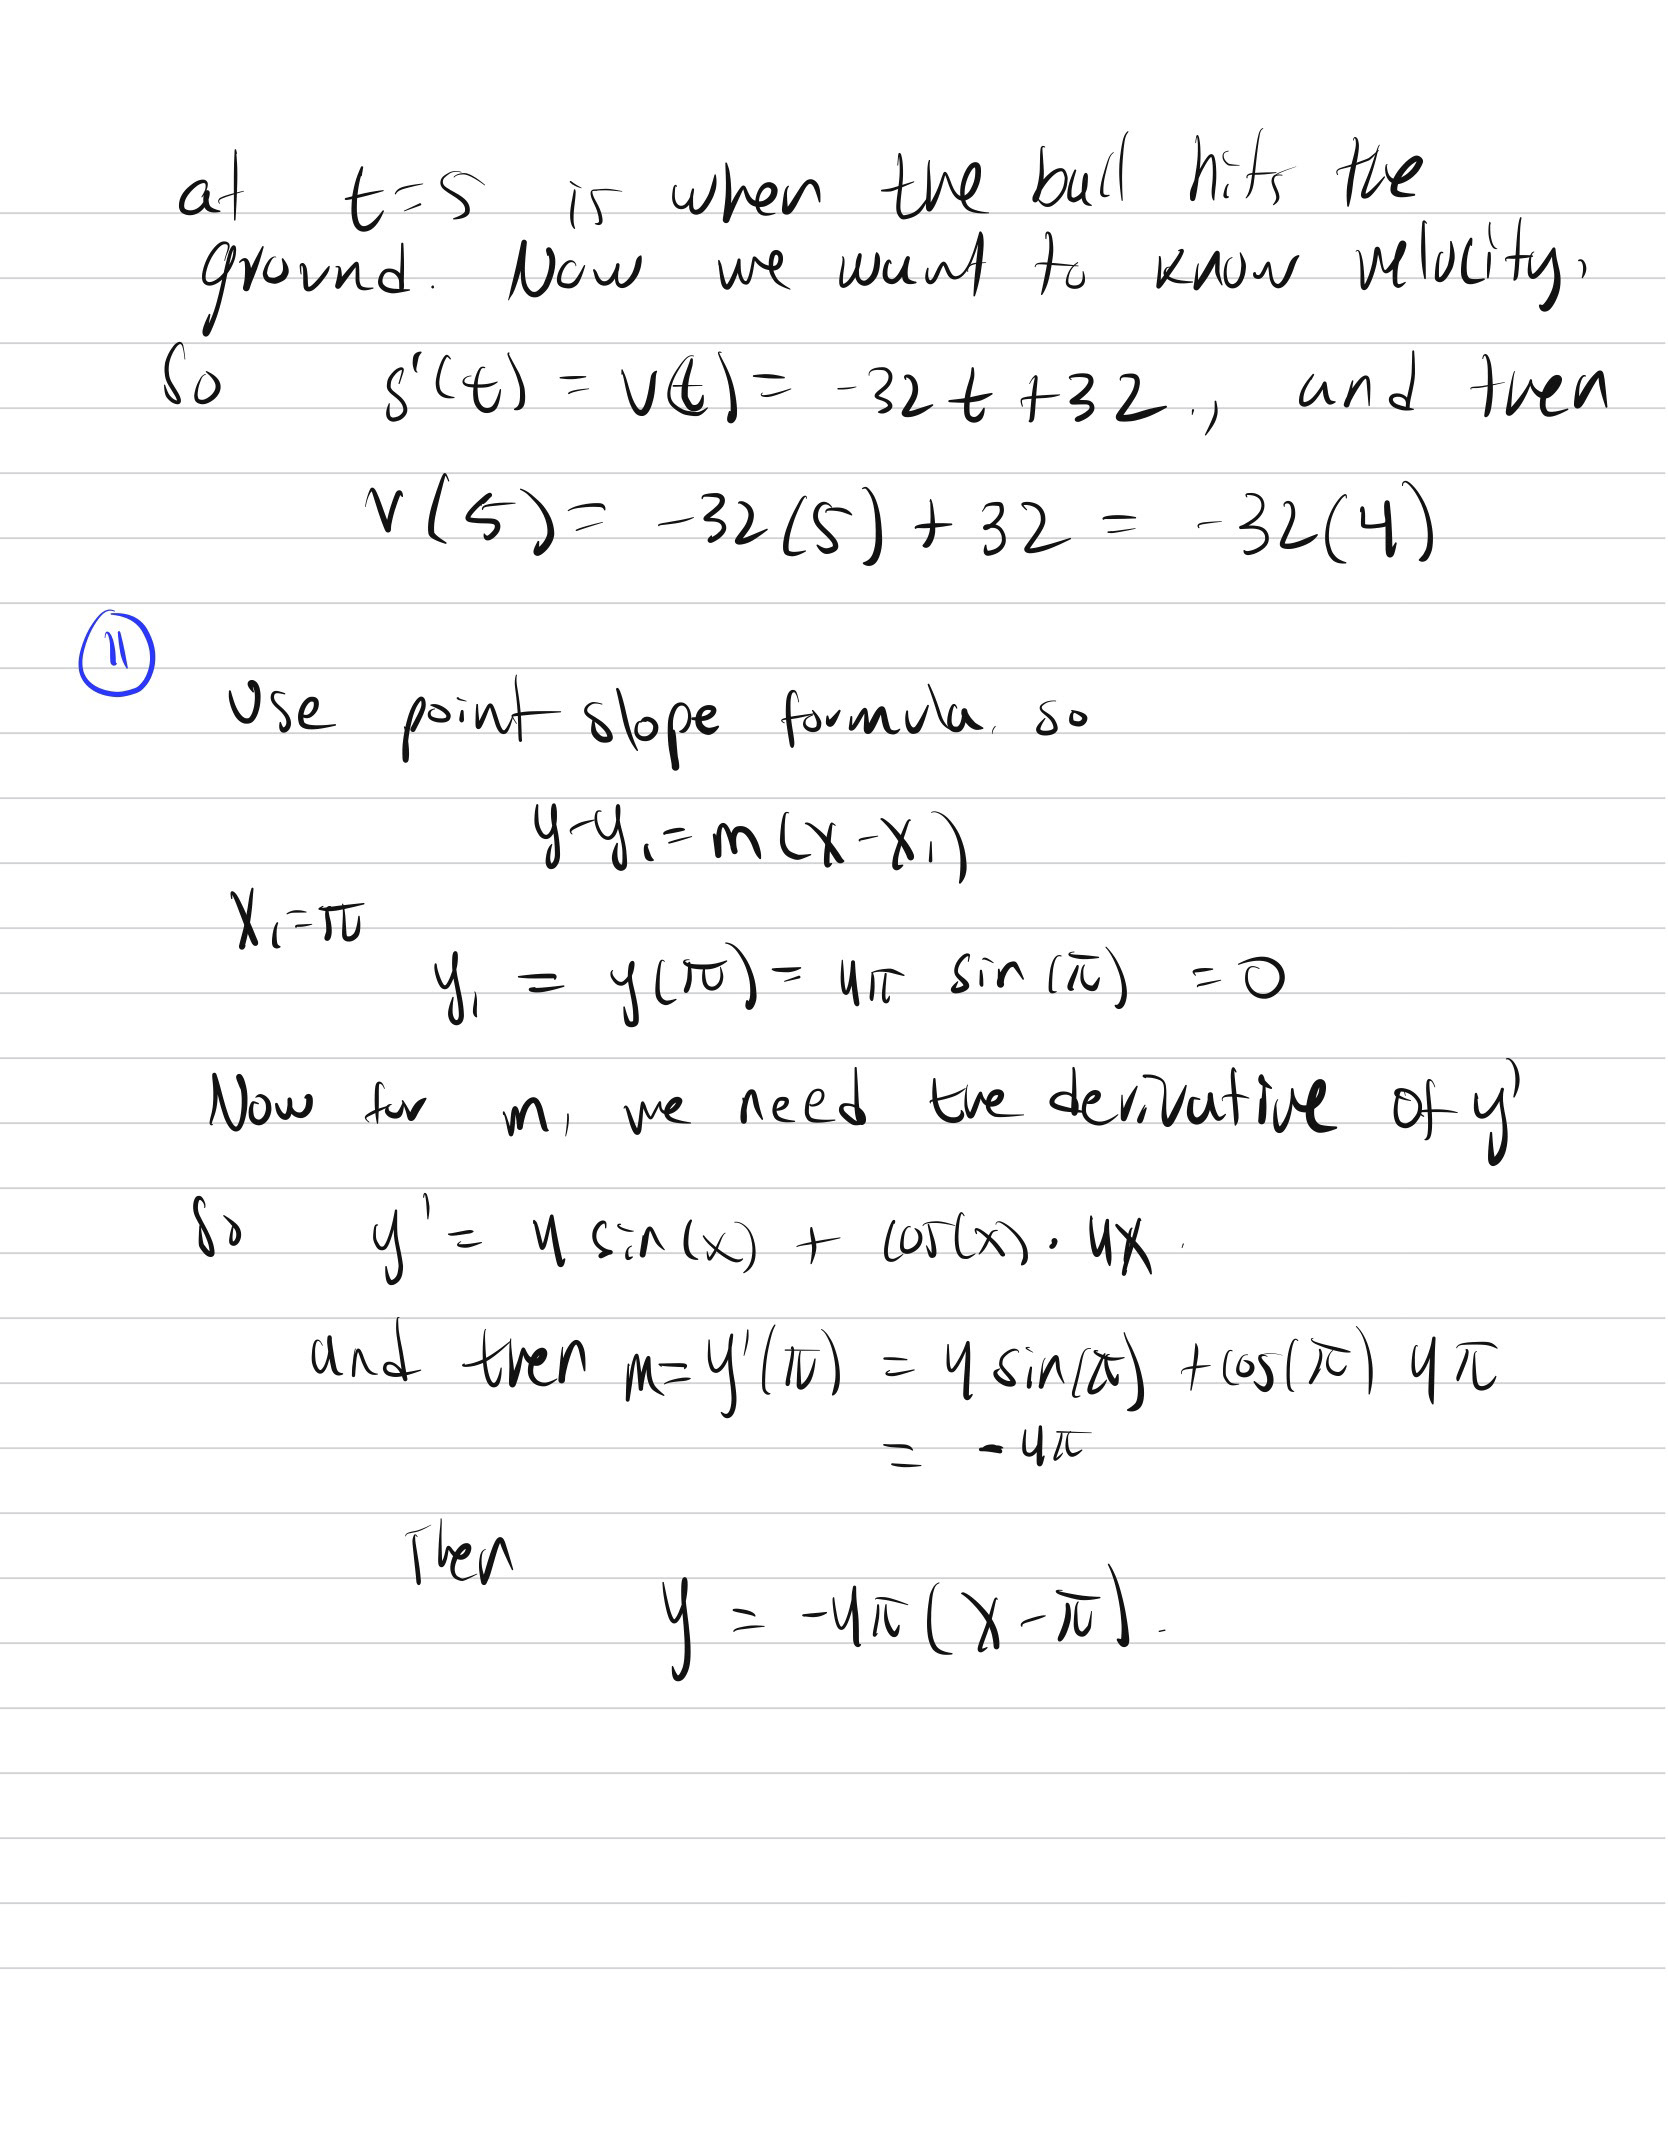 at t=5 is when the ball hits the
ground. Now we want to know velocity,
So s'(t) = v(t) = -32t +32., and then
v(5) = -32(5) + 32 = -32(4)
11
Use point slope formula. so
y-y₁=m(x-x₁)
x₁=π
y₁ = y(π) = 4π sin(π) = 0
Now for m, we need the derivative of y'
So y' = 4 sin(x) + cos(x) · 4x.
and then m=y'(π) = 4 sin(π) + cos(π) 4π
= -4π
Then
y = -4π(x-π).